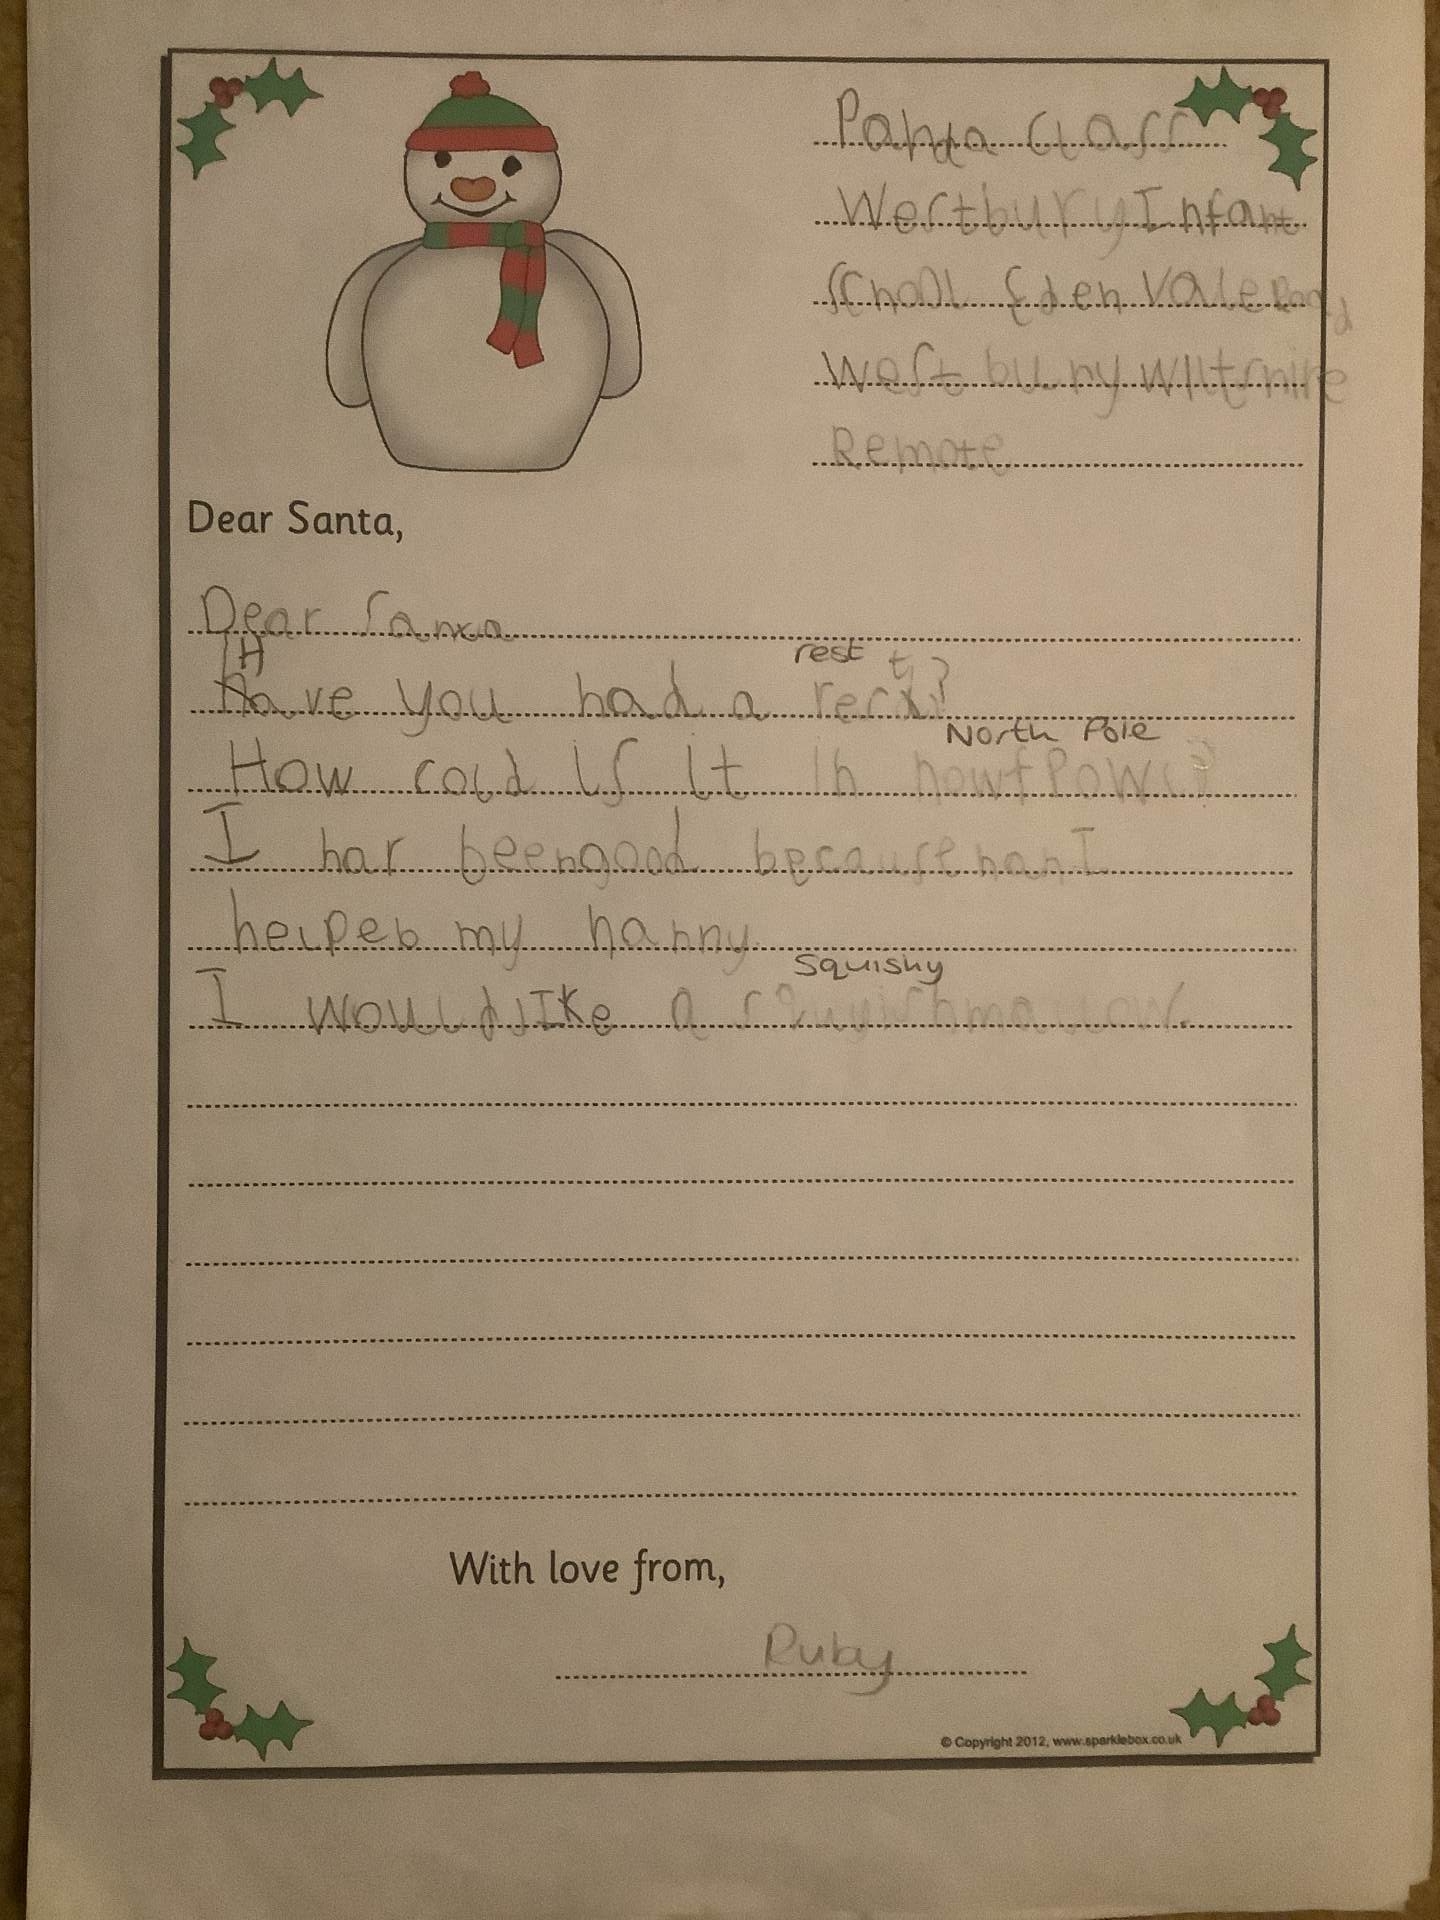 Panda class
Westbury Infant
School Eden Vale Road
West bury Wiltshire
Remote
Dear Santa,
Dear Santa
H
rest t
Have you had a rest?
North Pole
How cold is it in nowf Powl?
I has been good because
helpeb my nanny.
Squishy
I would like a squishmallow.
With love from,
Ruby
© Copyright 2012, www.sparklebox.co.uk